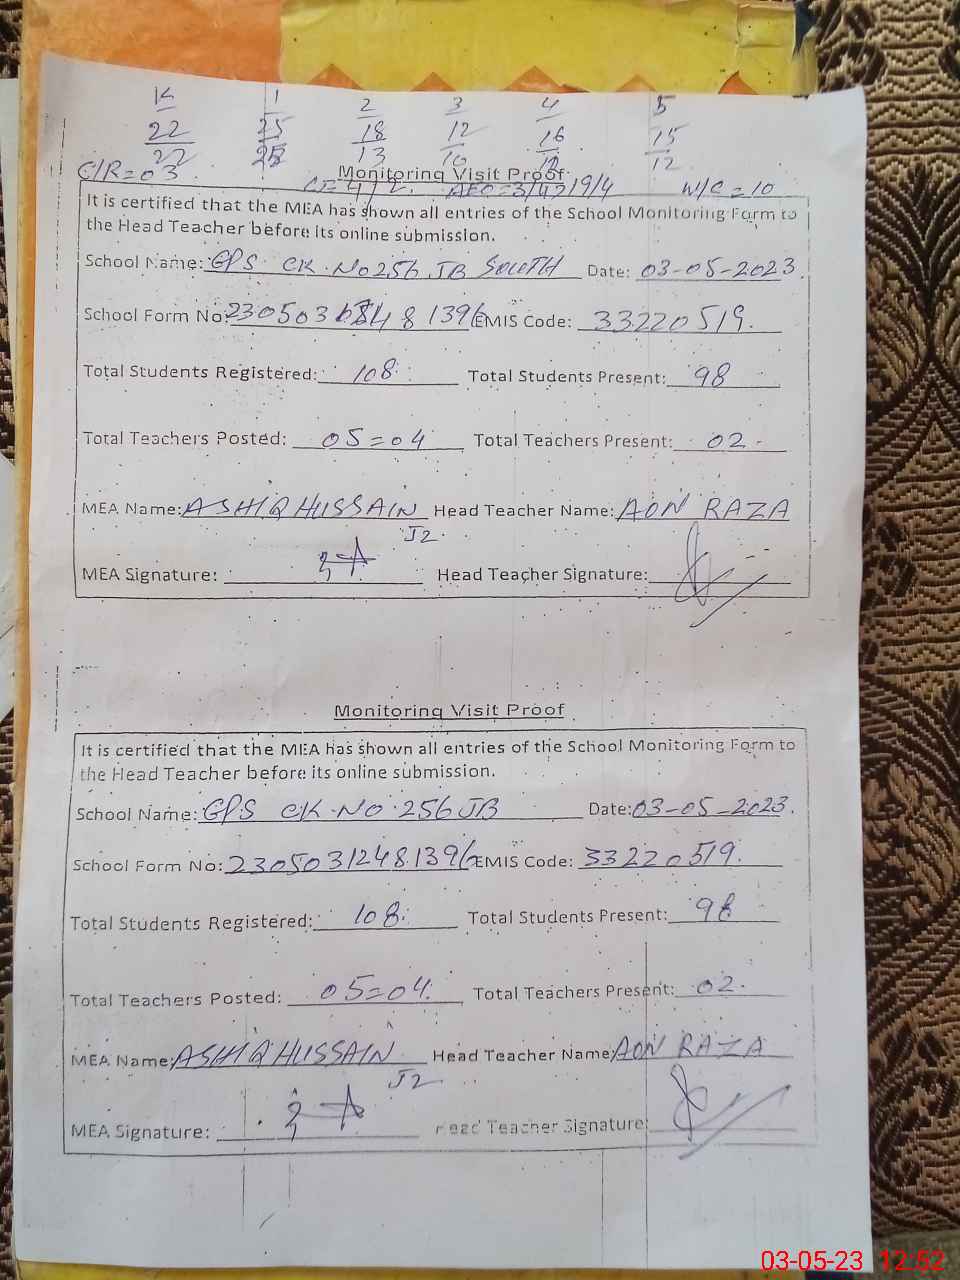 K 1 2 3 4 5
22 25 18 12 16 15
22 25 13 10 12 12
C/R=03
Monitoring Visit Proof
AEO=3/4 W/C=10
It is certified that the MEA has shown all entries of the School Monitoring Form to
the Head Teacher before its online submission.
School Name: GPS CK.No 256 JB SOUTH Date: 03-05-2023.
School Form No: EMIS Code: 33220519.
Total Students Registered: 108 Total Students Present: 98
Total Teachers Posted: 05=04 Total Teachers Present: 02.
MEA Name: ASHIQ HUSSAIN Head Teacher Name: AON RAZA
J2.
MEA Signature: Head Teacher Signature:
Monitoring Visit Proof
It is certified that the MEA has shown all entries of the School Monitoring Form to
the Head Teacher before its online submission.
School Name: GPS CK.No.256 JB Date: 03-05-2023.
School Form No: 23050312481396 EMIS Code: 33220519.
Total Students Registered: 108. Total Students Present: 98
Total Teachers Posted: 05=04. Total Teachers Present: 02.
MEA Name: ASHIQ HUSSAIN Head Teacher Name: AON RAZA
J2
MEA Signature: Head Teacher Signature:
03-05-23 12:52